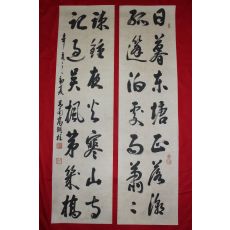 日暮東塘正落潮
孤篷泊處雨蕭〻
疎鐘夜火寒山寺
記過吳楓第幾橋